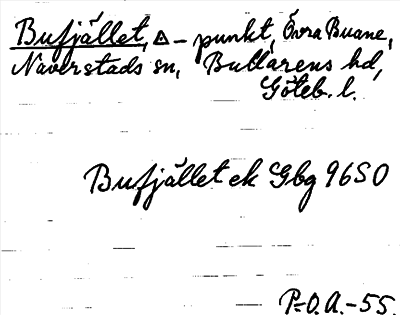 Bufjället, △ - punkt, Övra Buane,
Naverstads sn, Bullarens hd,
Göteb. l.
Bufjället ek Gbg 96SO
P.-O. A. -55.